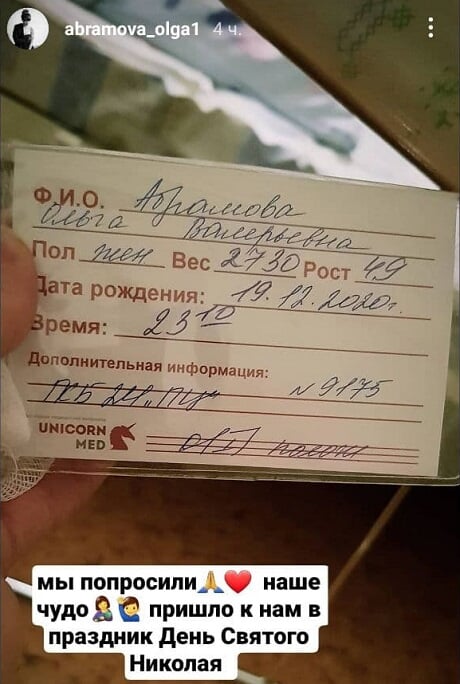 abramova_olga1 4 ч.
Ф.И.О. Абрамова
Ольга Валерьевна
Пол жен Вес 2730 Рост 49
Дата рождения: 19.12.2020г.
Время: 23 10
Дополнительная информация:
ГКБ 24 "ПЦ" №9175
UNICORN
MED
мы попросили🙏❤️ наше
чудо🤱🙋‍♂️ пришло к нам в
праздник День Святого
Николая